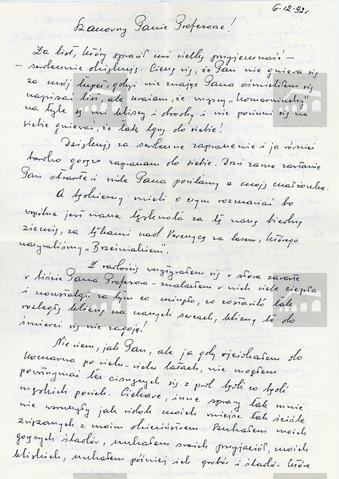 6-12-92r.
Szanowny Panie Profesorze!
Za list, który sprawił mi wielką przyjemność –
– serdecznie dziękuję. Cieszę się, że Pan nie gniewa się
za mój tupet, gdyż nie znając Pana ośmieliłem się
napisać list, ale uważam, że wszyscy "Komarniacy"
na tyle są mi bliscy i drodzy i nie powinni się na
siebie gniewać, że tak lgną do siebie!
Dziękuję za serdeczne zaproszenie i ja również
bardzo gorąco zapraszam do siebie. Drzwi zawsze zastanie
Pan otwarte i mile Pana powitamy z moją małżonką.
A będziemy mieli o czym rozmawiać bo
wspólna jest nasza tęsknota za tą naszą biedną
ziemią, za łąkami nad Wereszycą za lasem, którego
nazywaliśmy "Brzeźniakiem".
Z radością wczytywałem się w słowa zawarte
w liście Pana Profesora – znalazłem w nich wiele ciepła
i nostalgii za tym co minęło, co zostawiło tak
rozległą bliznę na naszych sercach, bliznę która do
śmierci się nie zagoi!
Nie wiem, jak Pan, ale ja gdy wjechałem do
Komarna po wielu-wielu latach, nie mogłem
powstrzymać łez cisnących się z pod
męskich powiek. Ciekawe, inne sprawy tak mnie
nie wzruszyły jak widok moich miejsc tak ściśle
związanych z moim dzieciństwem. Szukałem moich
gorących śladów, szukałem swoich przyjaciół, moich
bliskich, szukałem później ich grobów i śladów które